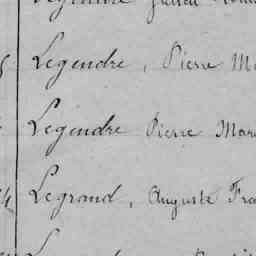 Legendre, Pierre Ma
Legendre Pierre Mar
Legrand, Auguste Fra